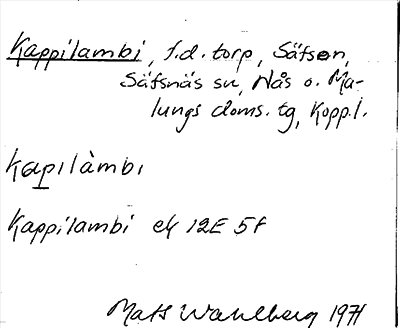 Kappilambi, f.d. torp, Säfsen,
Säfsnäs sn, Nås o. Ma-
lungs doms. tg, Kopp.l.
kapılàmbı
Kappilambi ek 12E 5f
Mats Wahlberg 1971